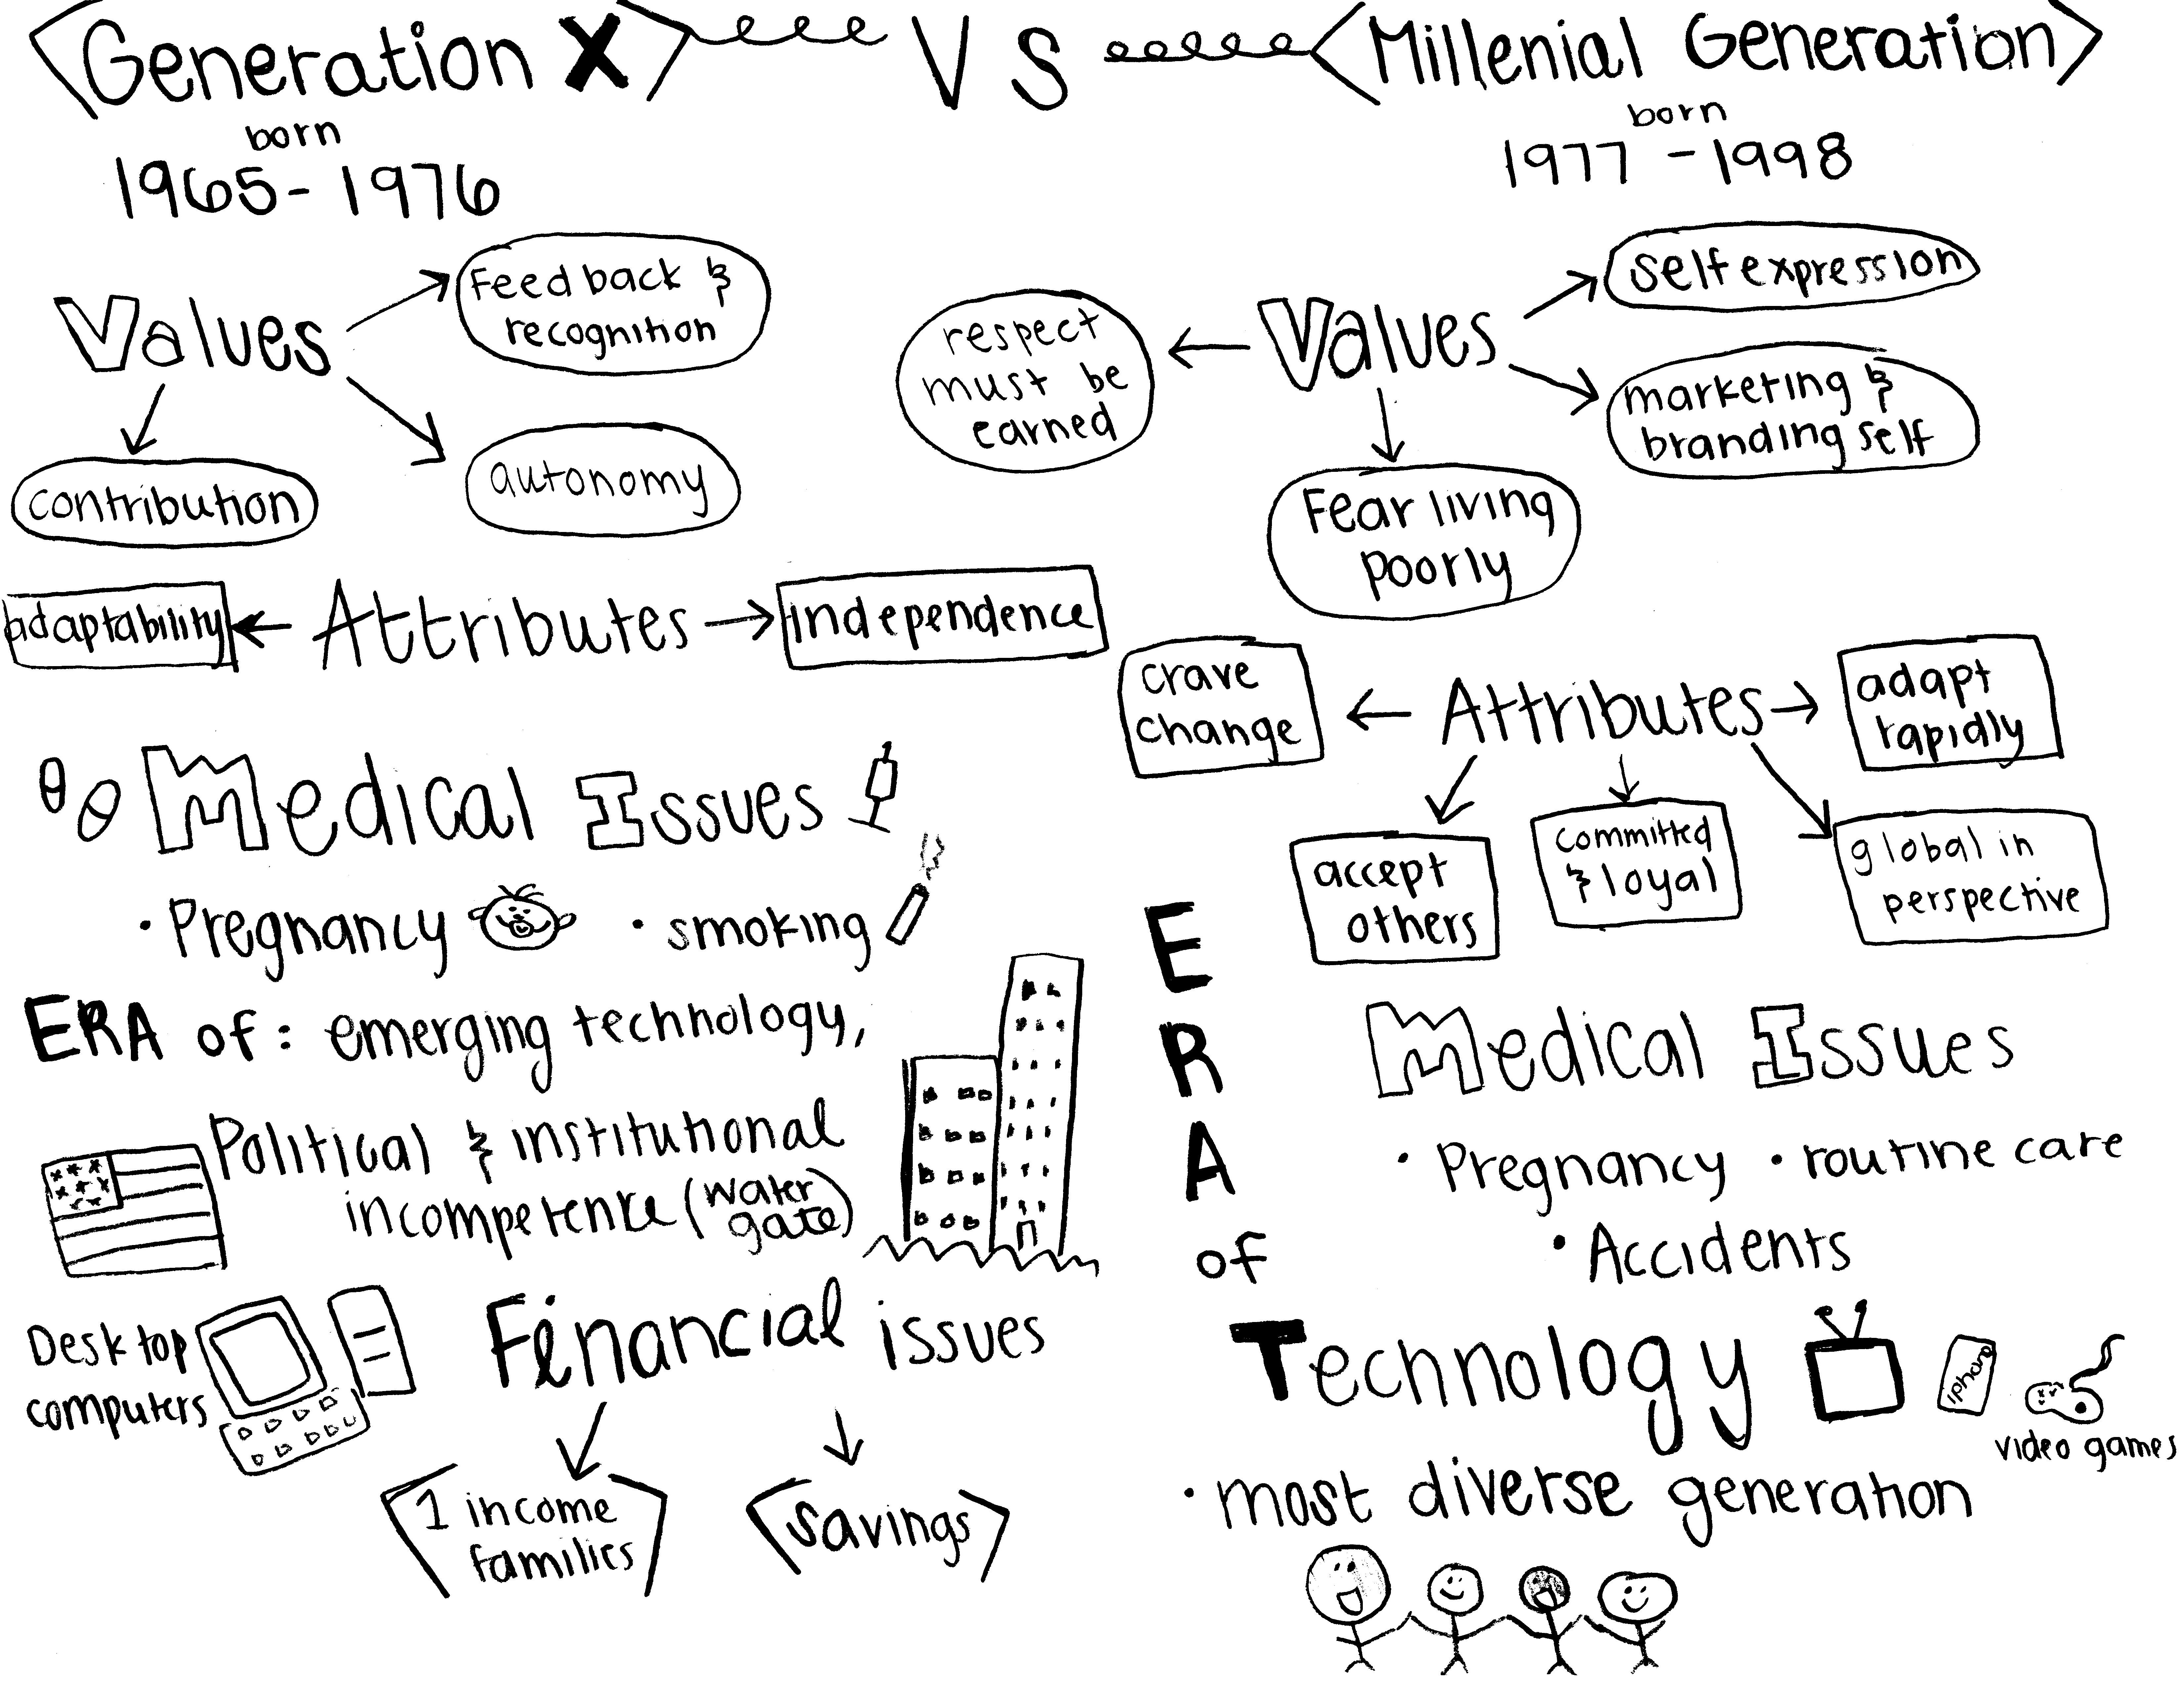 Generation X VS Millenial Generation
born
1965-1976
Values
Feedback &
recognition
contribution
autonomy
adaptability
Attributes
independence
Medical Issues
· Pregnancy
· smoking
ERA of: emerging technology,
Political & institutional
incompetence (water
gate)
Desktop
computers
Financial issues
1 income
families
savings
born
1977-1998
Values
self expression
respect
must be
earned
marketing &
branding self
Fear living
poorly
crave
change
Attributes
adapt
rapidly
accept
others
committed
& loyal
global in
perspective
Medical Issues
· Pregnancy · routine care
· Accidents
ERA
of
Technology
iphone
video games
· most diverse generation